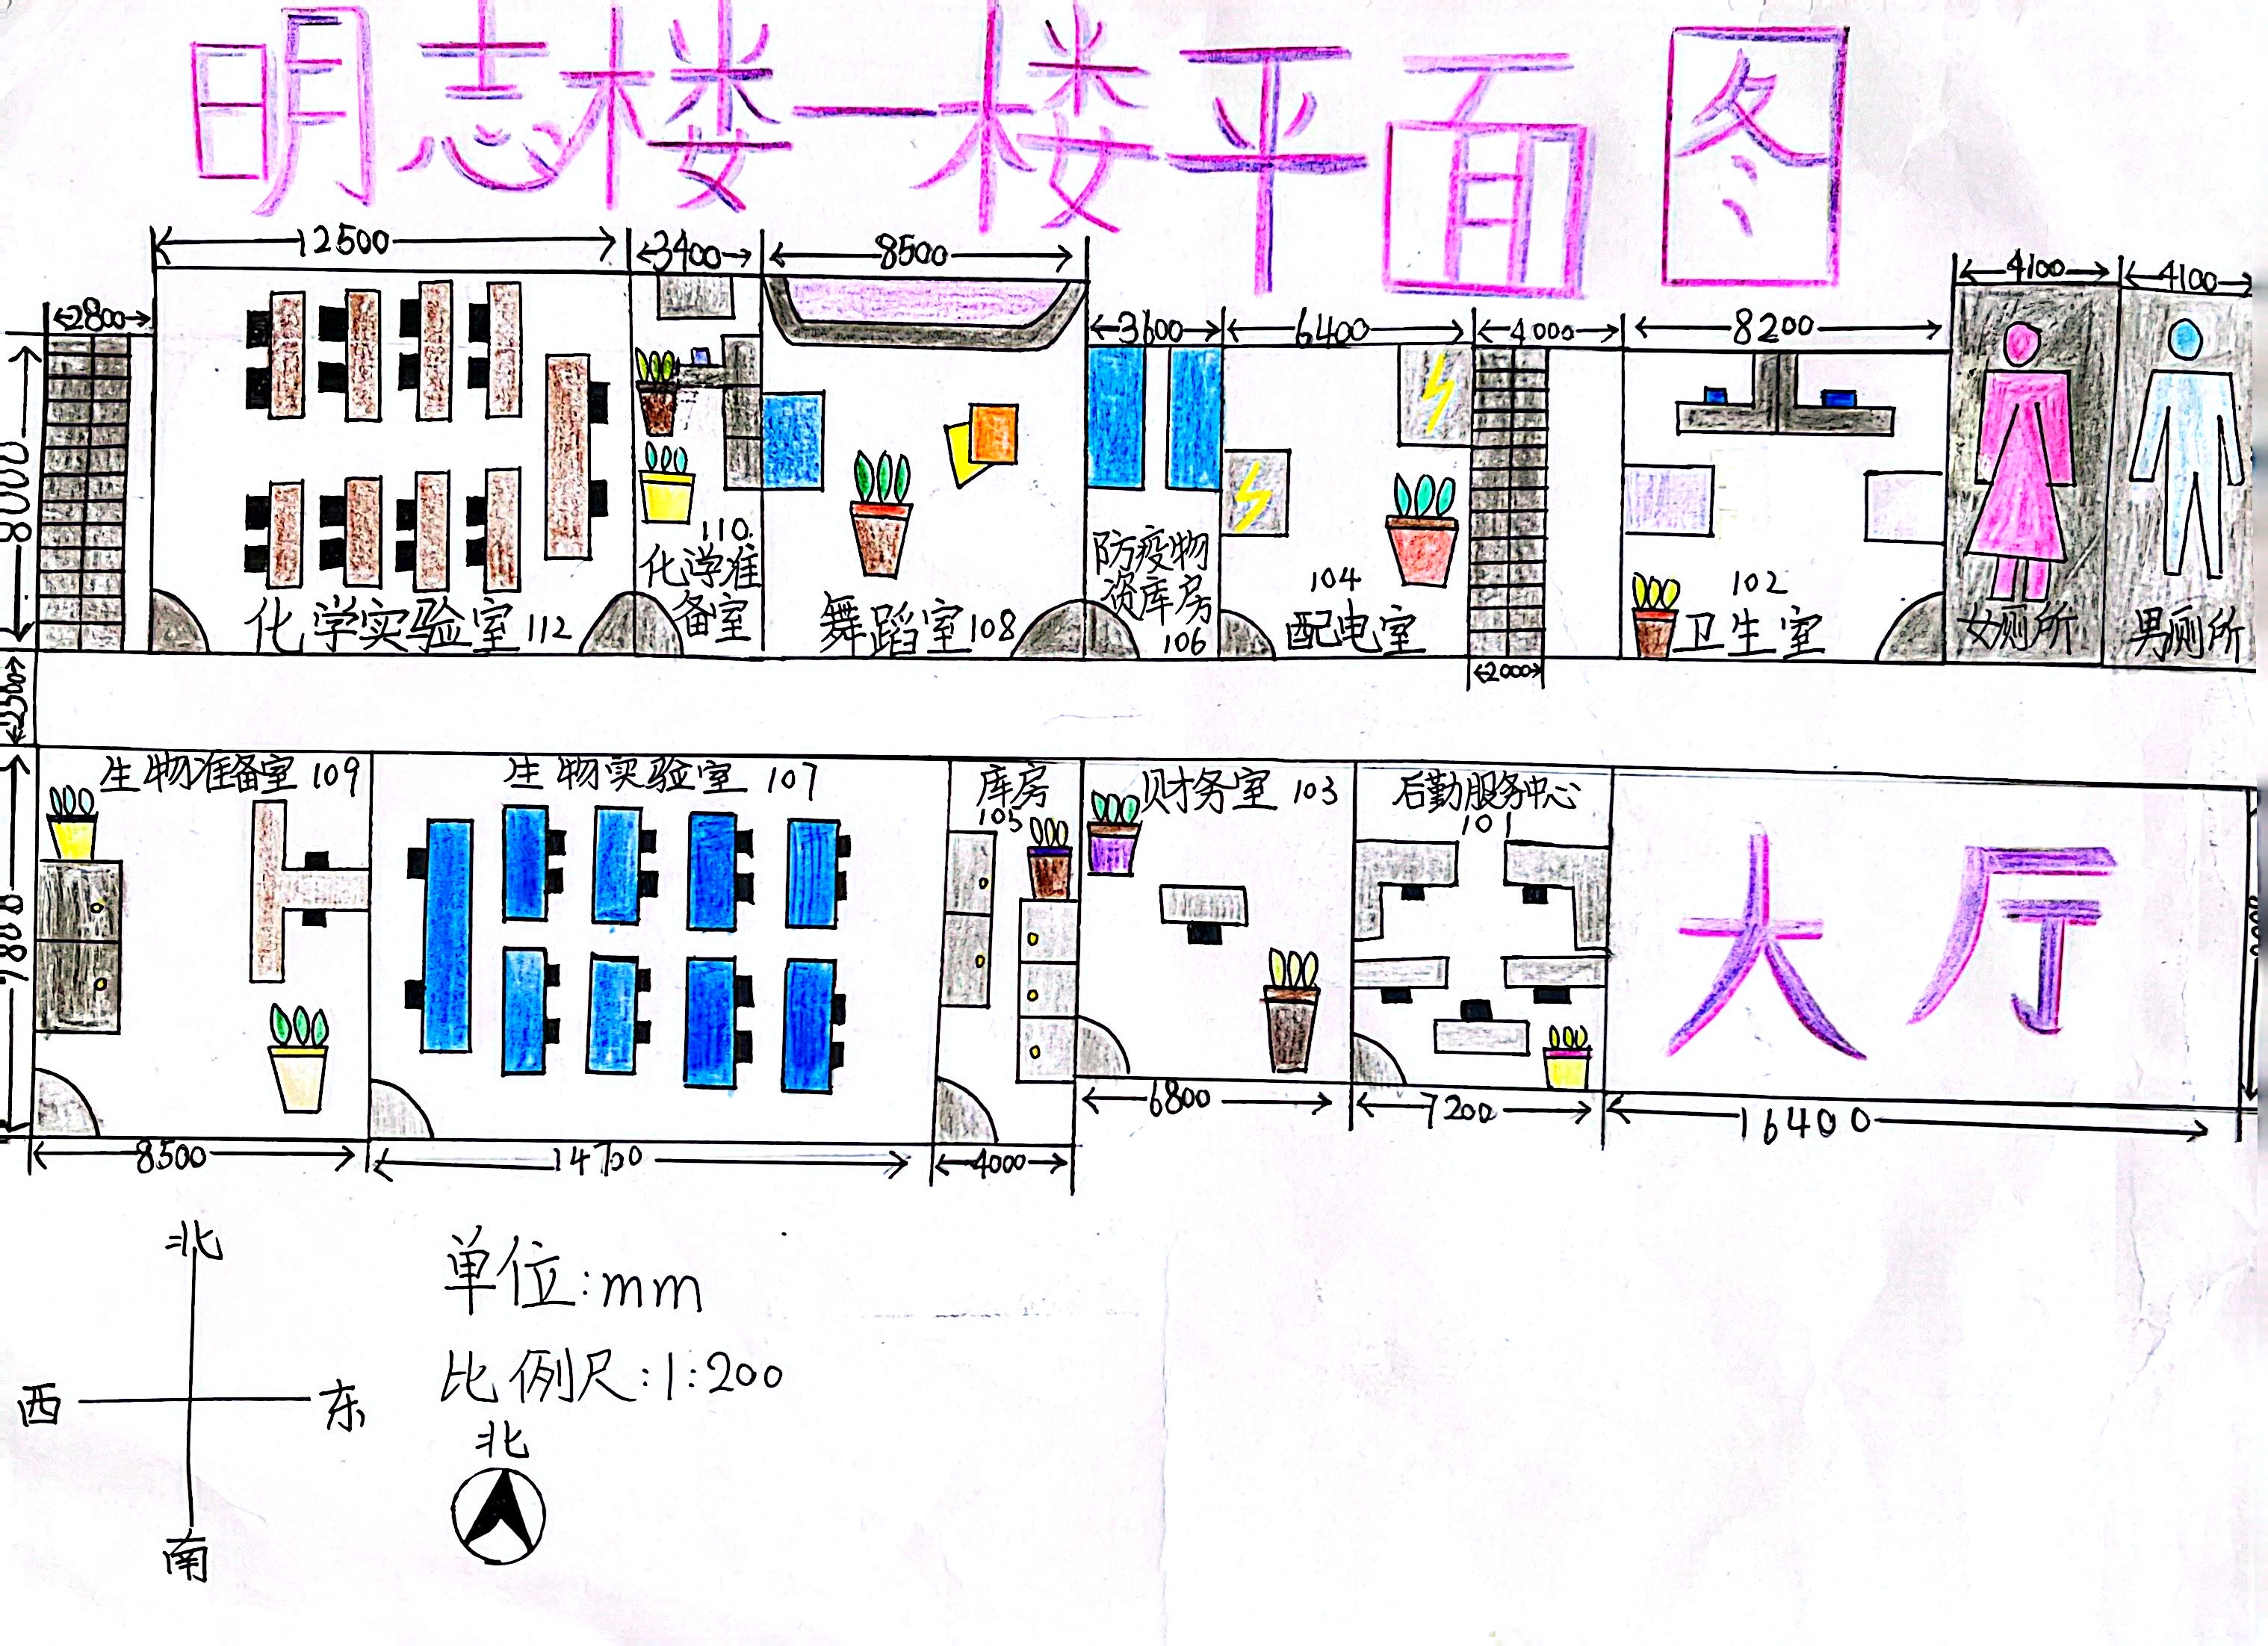 明志楼一楼平面图
12500
3400
8500
2800
3600
6400
4000
8200
4100
4100
8000
化学实验室 112
110
化学准
备室
舞蹈室108
防疫物
资库房
106
104
配电室
102
卫生室
女厕所
男厕所
2000
2500
生物准备室 109
生物实验室 107
库房
105
财务室 103
后勤服务中心
101
大厅
7800
8500
14700
4000
6800
7200
16400
北
西
东
南
单位:mm
比例尺:1:200
北